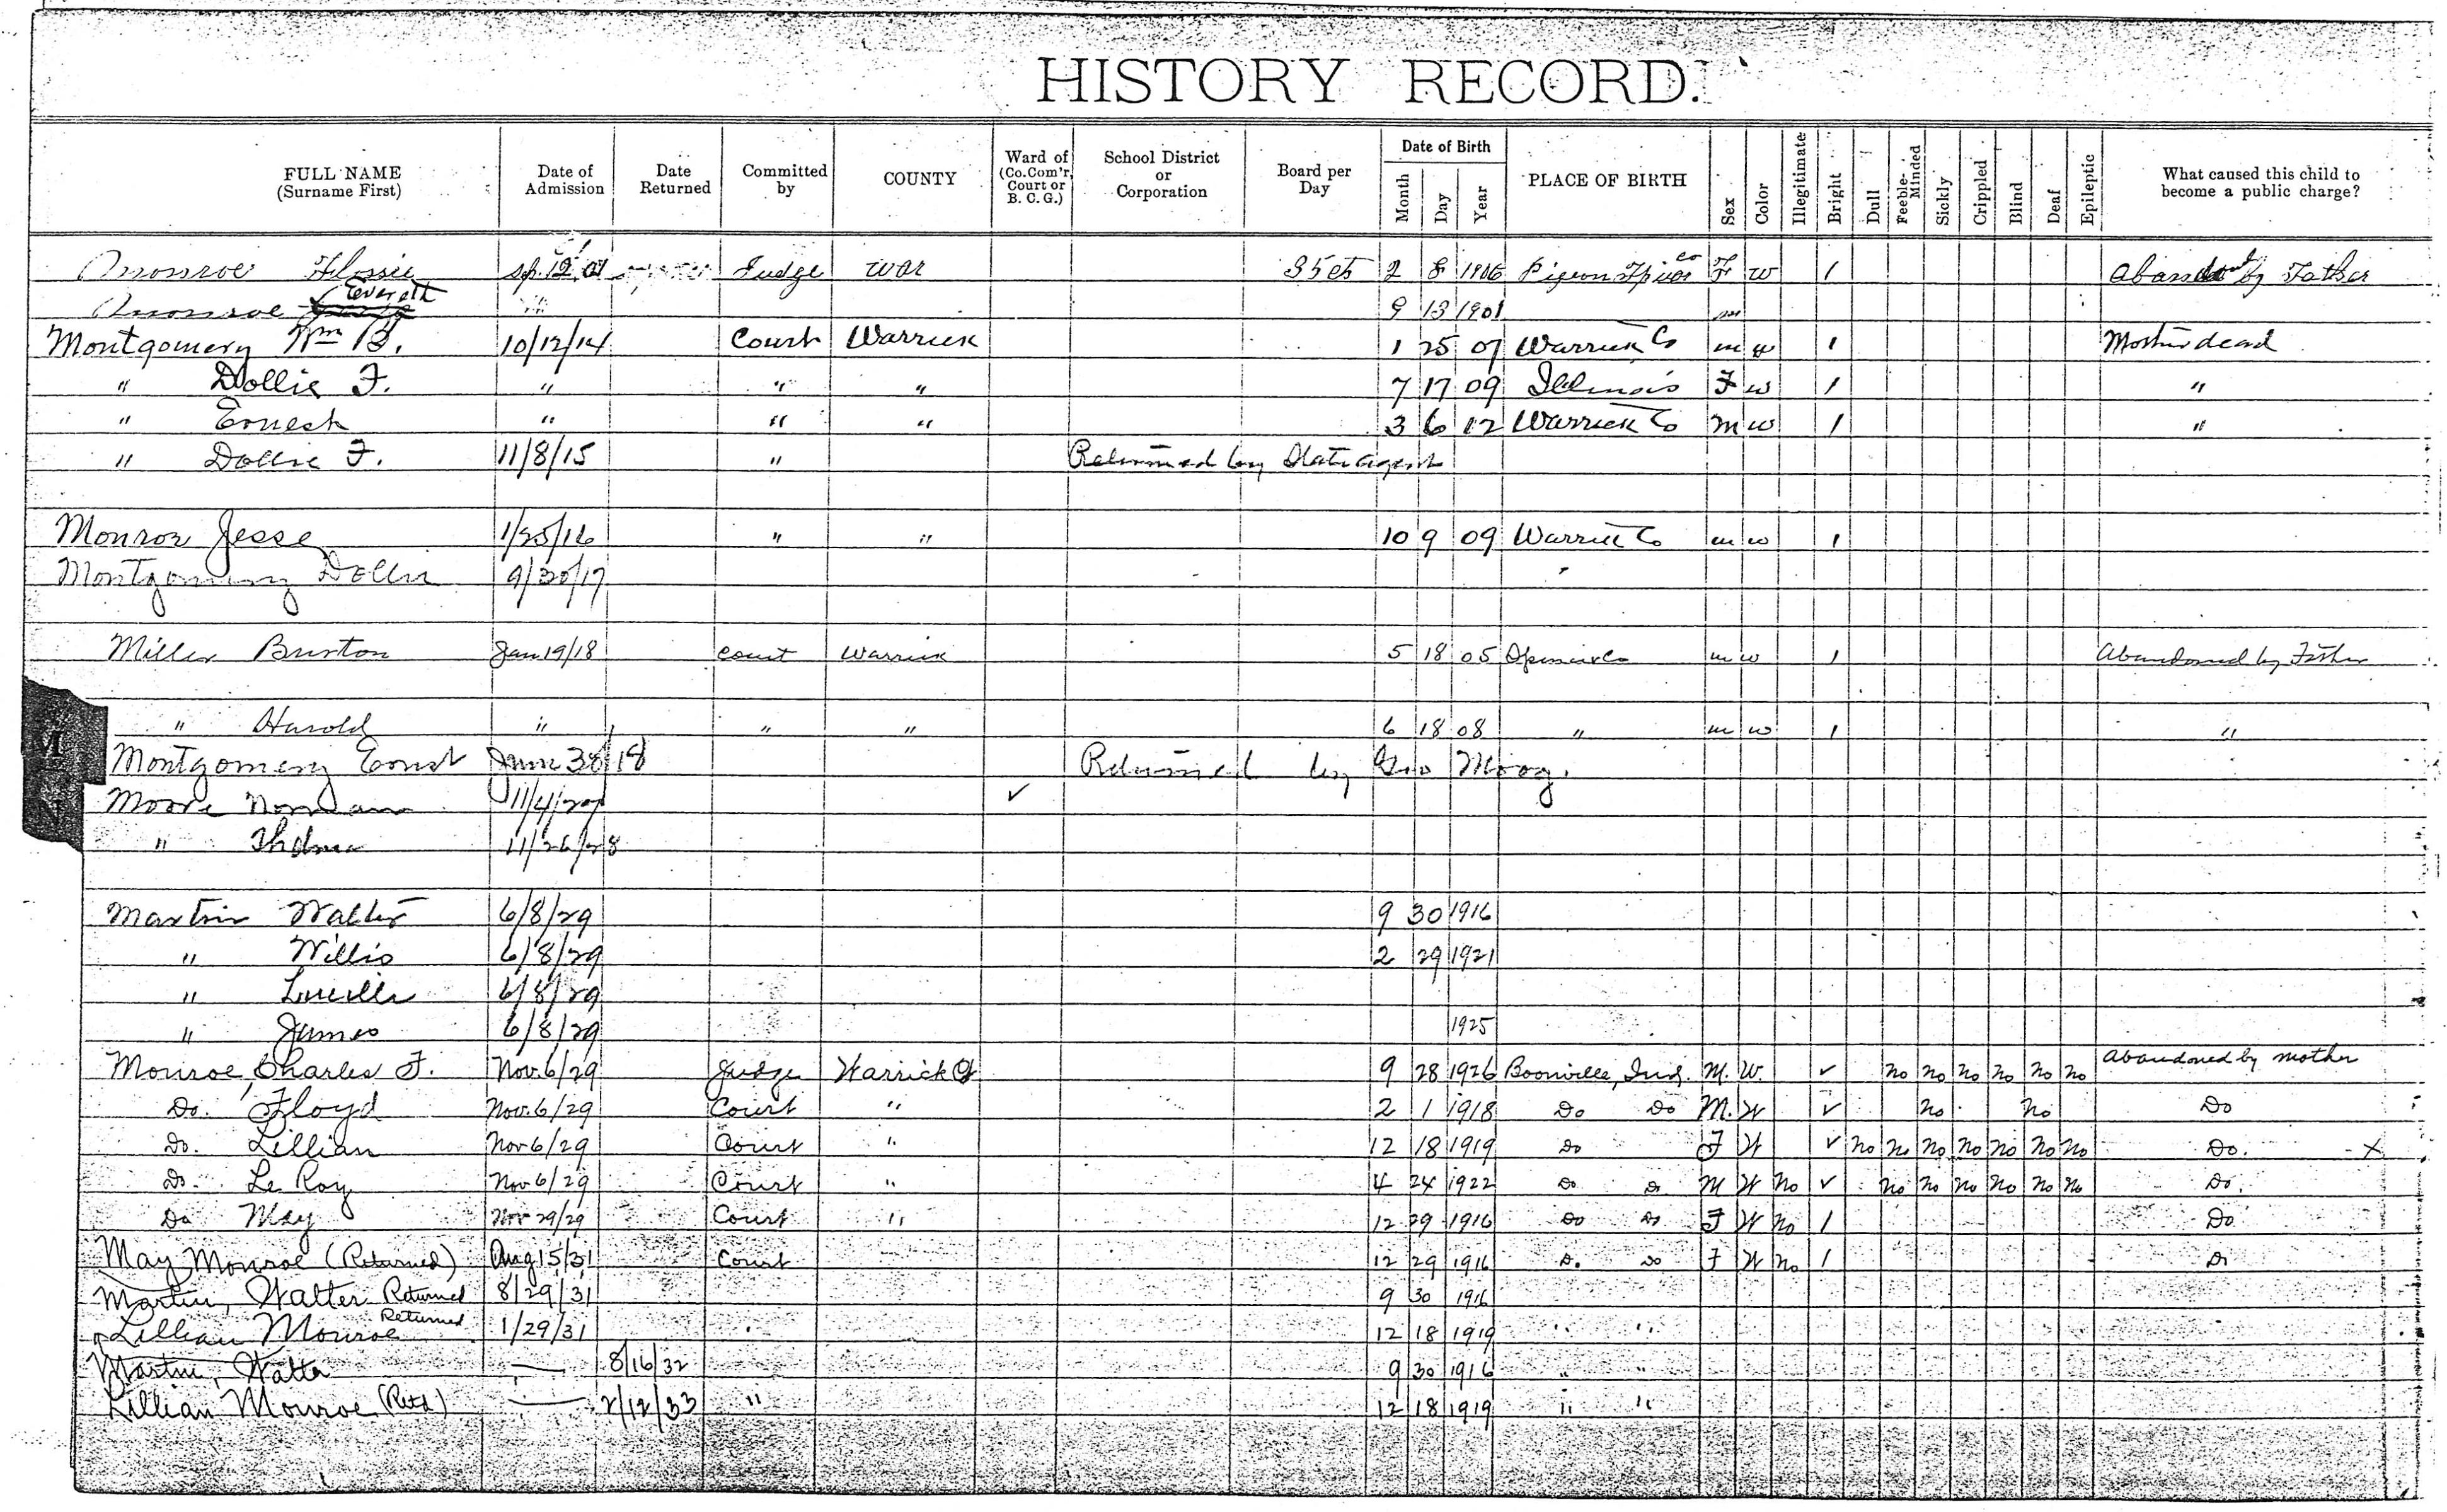 HISTORY RECORD.
FULL NAME (Surname First) Date of Admission Date Returned Committed by COUNTY Ward of (Co.Com'r, Court or B. C. G.) School District or Corporation Board per Day Date of Birth Month Day Year PLACE OF BIRTH Sex Color Illegitimate Bright Dull Feeble-Minded Sickly Crippled Blind Deaf Epileptic What caused this child to become a public charge?
Monroe Flossie Judge War 35cts 2 8 1906 Pigeon F W 1 by Father
Monroe Everett 9 13 1901 m
Montgomery Wm B. 10/12/14 Court Warrick 1 25 07 Warrick Co m w 1 Mother dead
" Dollie F. " " " 7 17 09 Illinois F w 1 "
" Ernest " " " 3 6 12 Warrick Co m w 1 "
" Dollie F. 11/8/15 " Returned by State agent
Monroe Jesse 1/25/16 " " 10 9 09 Warrick Co m w 1
Montgomery Dollie 9/20/17
Miller Burton Jan 19/18 Court Warrick 5 18 05 Spencer Co m w 1 Abandoned by Father
" Harold " " " 6 18 08 " m w 1 "
M
Montgomery Ernest June /18 Returned by Geo Moog.
N
Moore 11/4/27 ✓
" Thelma 11/26/28
Martin Walter 6/8/29 9 30 1916
" Willis 6/8/29 2 29 1921
" Lucille 6/8/29
" James 6/8/29 1925
Monroe, Charles F. Nov. 6/29 Judge Warrick Co 9 28 1926 Boonville, Ind. M. W. ✓ No No No No No No Abandoned by mother
Do. Floyd Nov. 6/29 Court " 2 1 1918 Do Do M. W ✓ No No Do
Do. Lillian Nov 6/29 Court " 12 18 1919 Do F W ✓ No No No No No No No Do. X
Do. Le Roy Nov 6/29 Court " 4 24 1922 Do Do M W No ✓ No No No No No No Do.
Do May Nov 29/29 Court " 12 29 1916 Do Do F W No 1 Do
May Monroe (Returned) Aug 15/31 Court 12 29 1916 Do Do F W No 1 Do
Martin, Walter Returned 8/29/31 9 30 1916
Lillian Monroe Returned 1/29/31 12 18 1919 " "
Martin, Walter — 8/16/32 9 30 1916 " "
Lillian Monroe (Retd) — 2/12/33 " 12 18 1919 " "